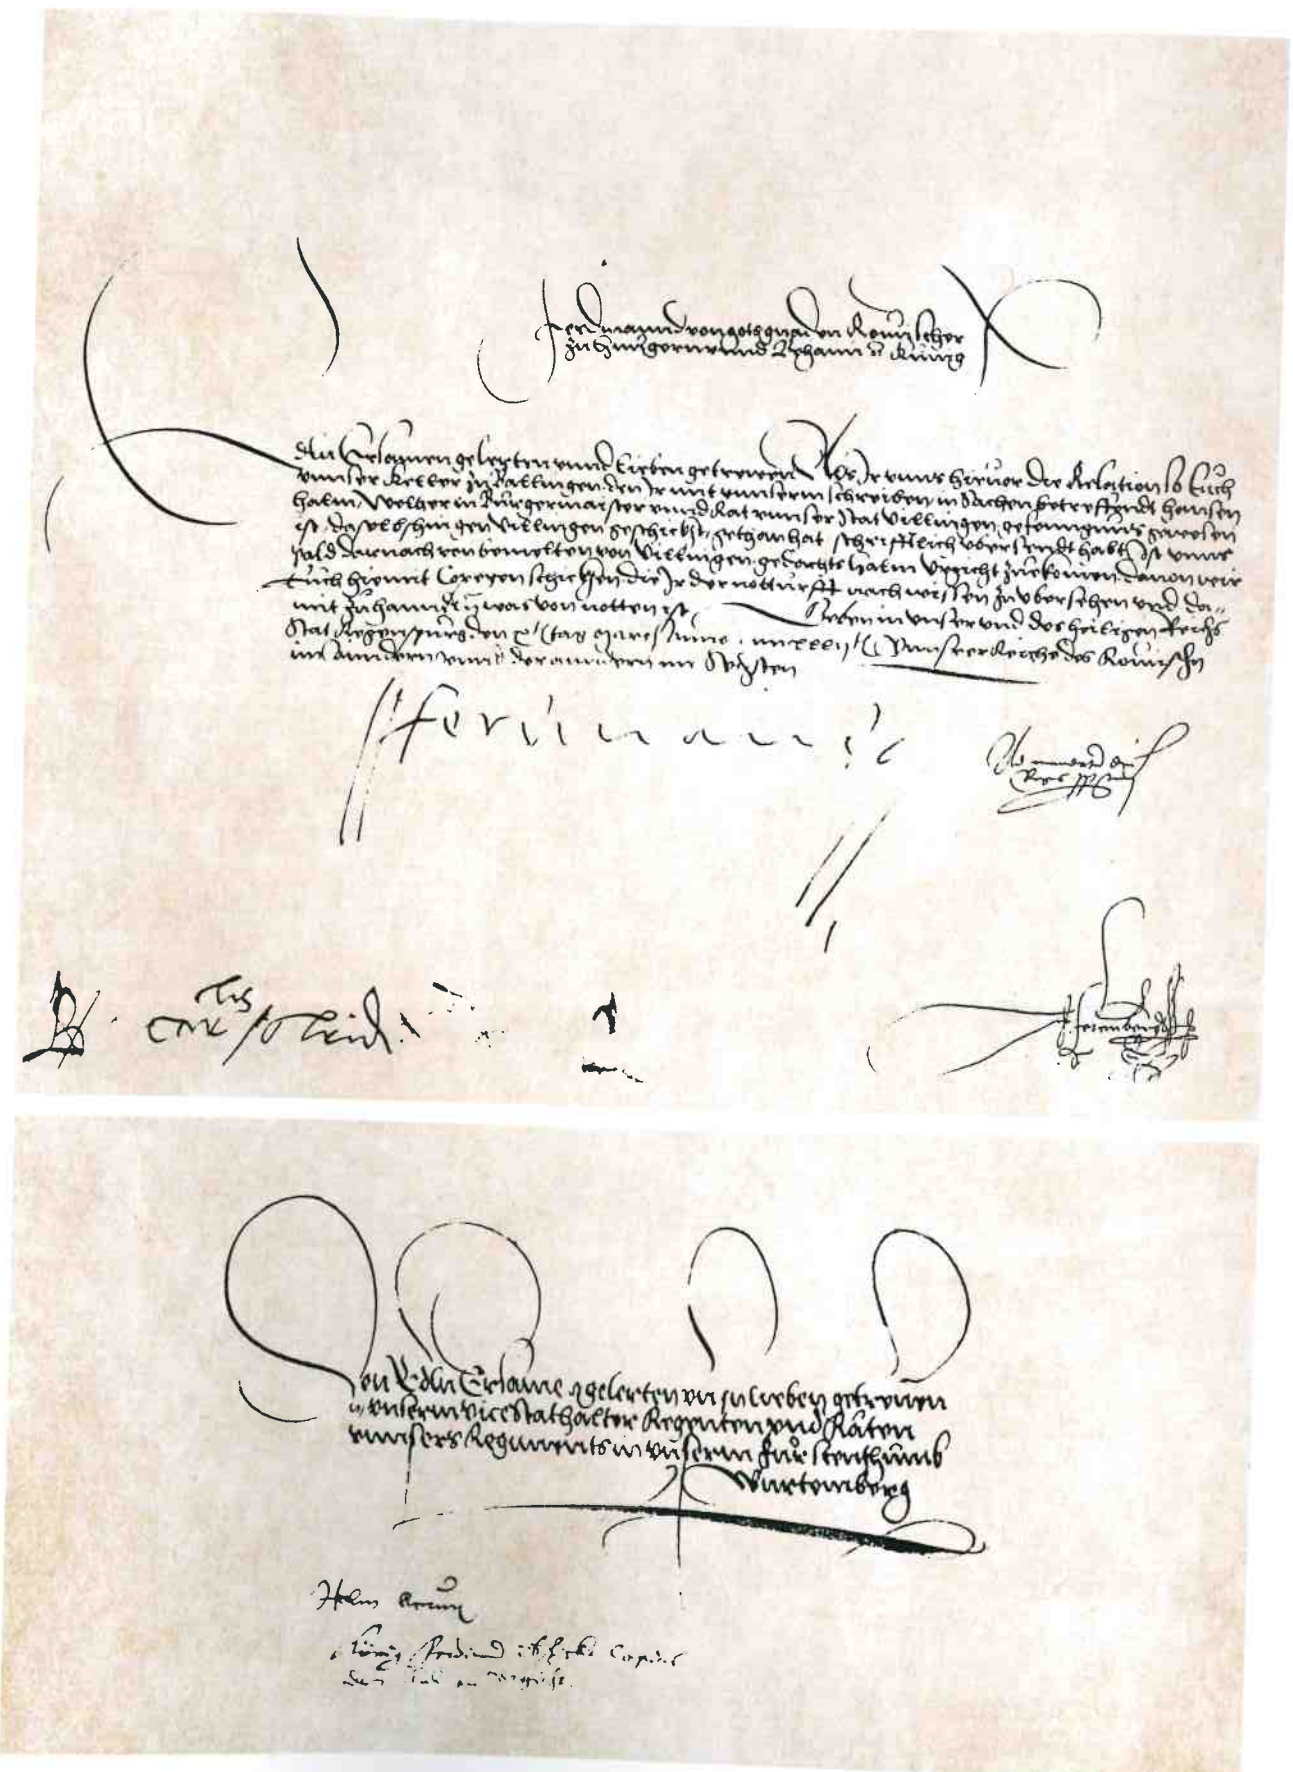 Ferdinannd von gots gnaden Romischer
zu Hungern vnnd Behaim &c Kunig
Edln Ersamen gelerten vnnd lieben getrewen Als Ir vnns hieuor die Relation so Euch
vnnser Keller zu Balingen den Ir mit vnnserm schreiben in Sachen betreffendt Hannsen
halm, Welher in Burgermaister vnnd Rat vnnser Stat Villingen gefenngnus gewesen
ist, daselbshin gen Villingen geschickht, gethan hat schrifftlich vbersenndt habt, Ist vnns
pald darnach von bemelten von Villingen gedachts halm Vrgicht zuekomen dauon wir
Euch hiemit Copeyen schickhen die Ir der notturfft nach wissen zu vbersehen vnd da-
mit zu hanndln was von notten ist. Geben in vnser vnd des heiligen Reichs
Stat Regenspurg den tag Marci Anno &c Vnnserer Reiche des Romischn
im anndern vnnd der anndern im Sechsten
Ferdinand
Ad mandatum
Regis
Den Edln Ersamen gelerten vnnsn lieben getrewen
N vnserm vice Stathalter Regenten vnd Räten
vnnsers Regiments in vnserm Furstenthumb
Wurtemberg
Halm
König Ferdinand schickt Copias